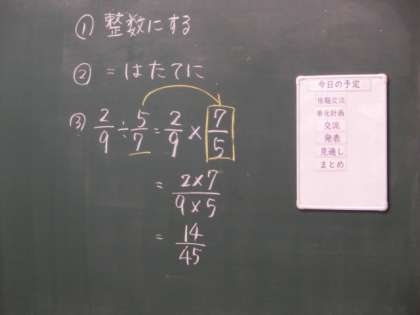 ① 整数にする
② = はたてに
③ 2/9 ÷ 5/7 = 2/9 × 7/5
= 2×7/9×5
= 14/45
今日の予定
交流
発表
見通し
まとめ